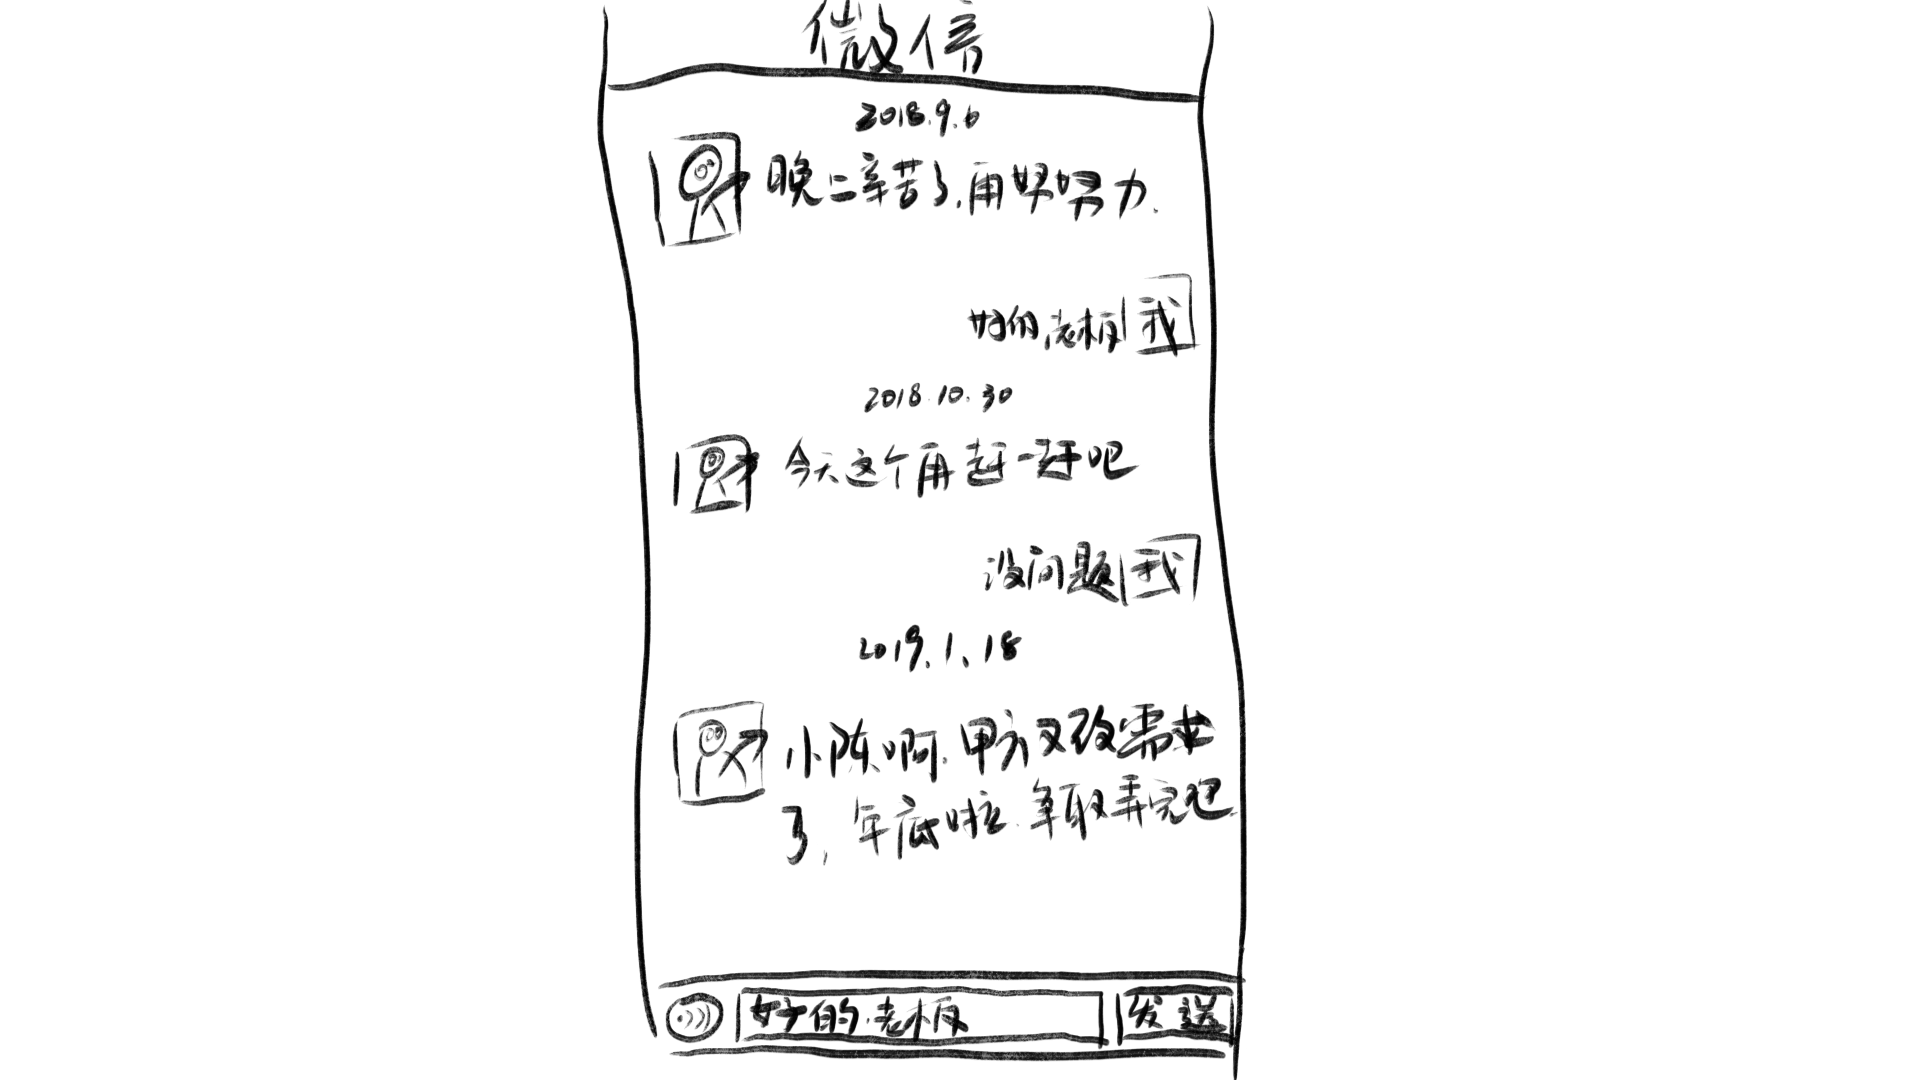 微信
2018.9.6
晚上辛苦了,再努努力.
好的,老板 我
2018.10.30
今天这个再赶一赶吧
没问题 我
2019.1.18
小陈啊,甲方又改需求
了,年底啦,争取弄完吧.
好的,老板 发送